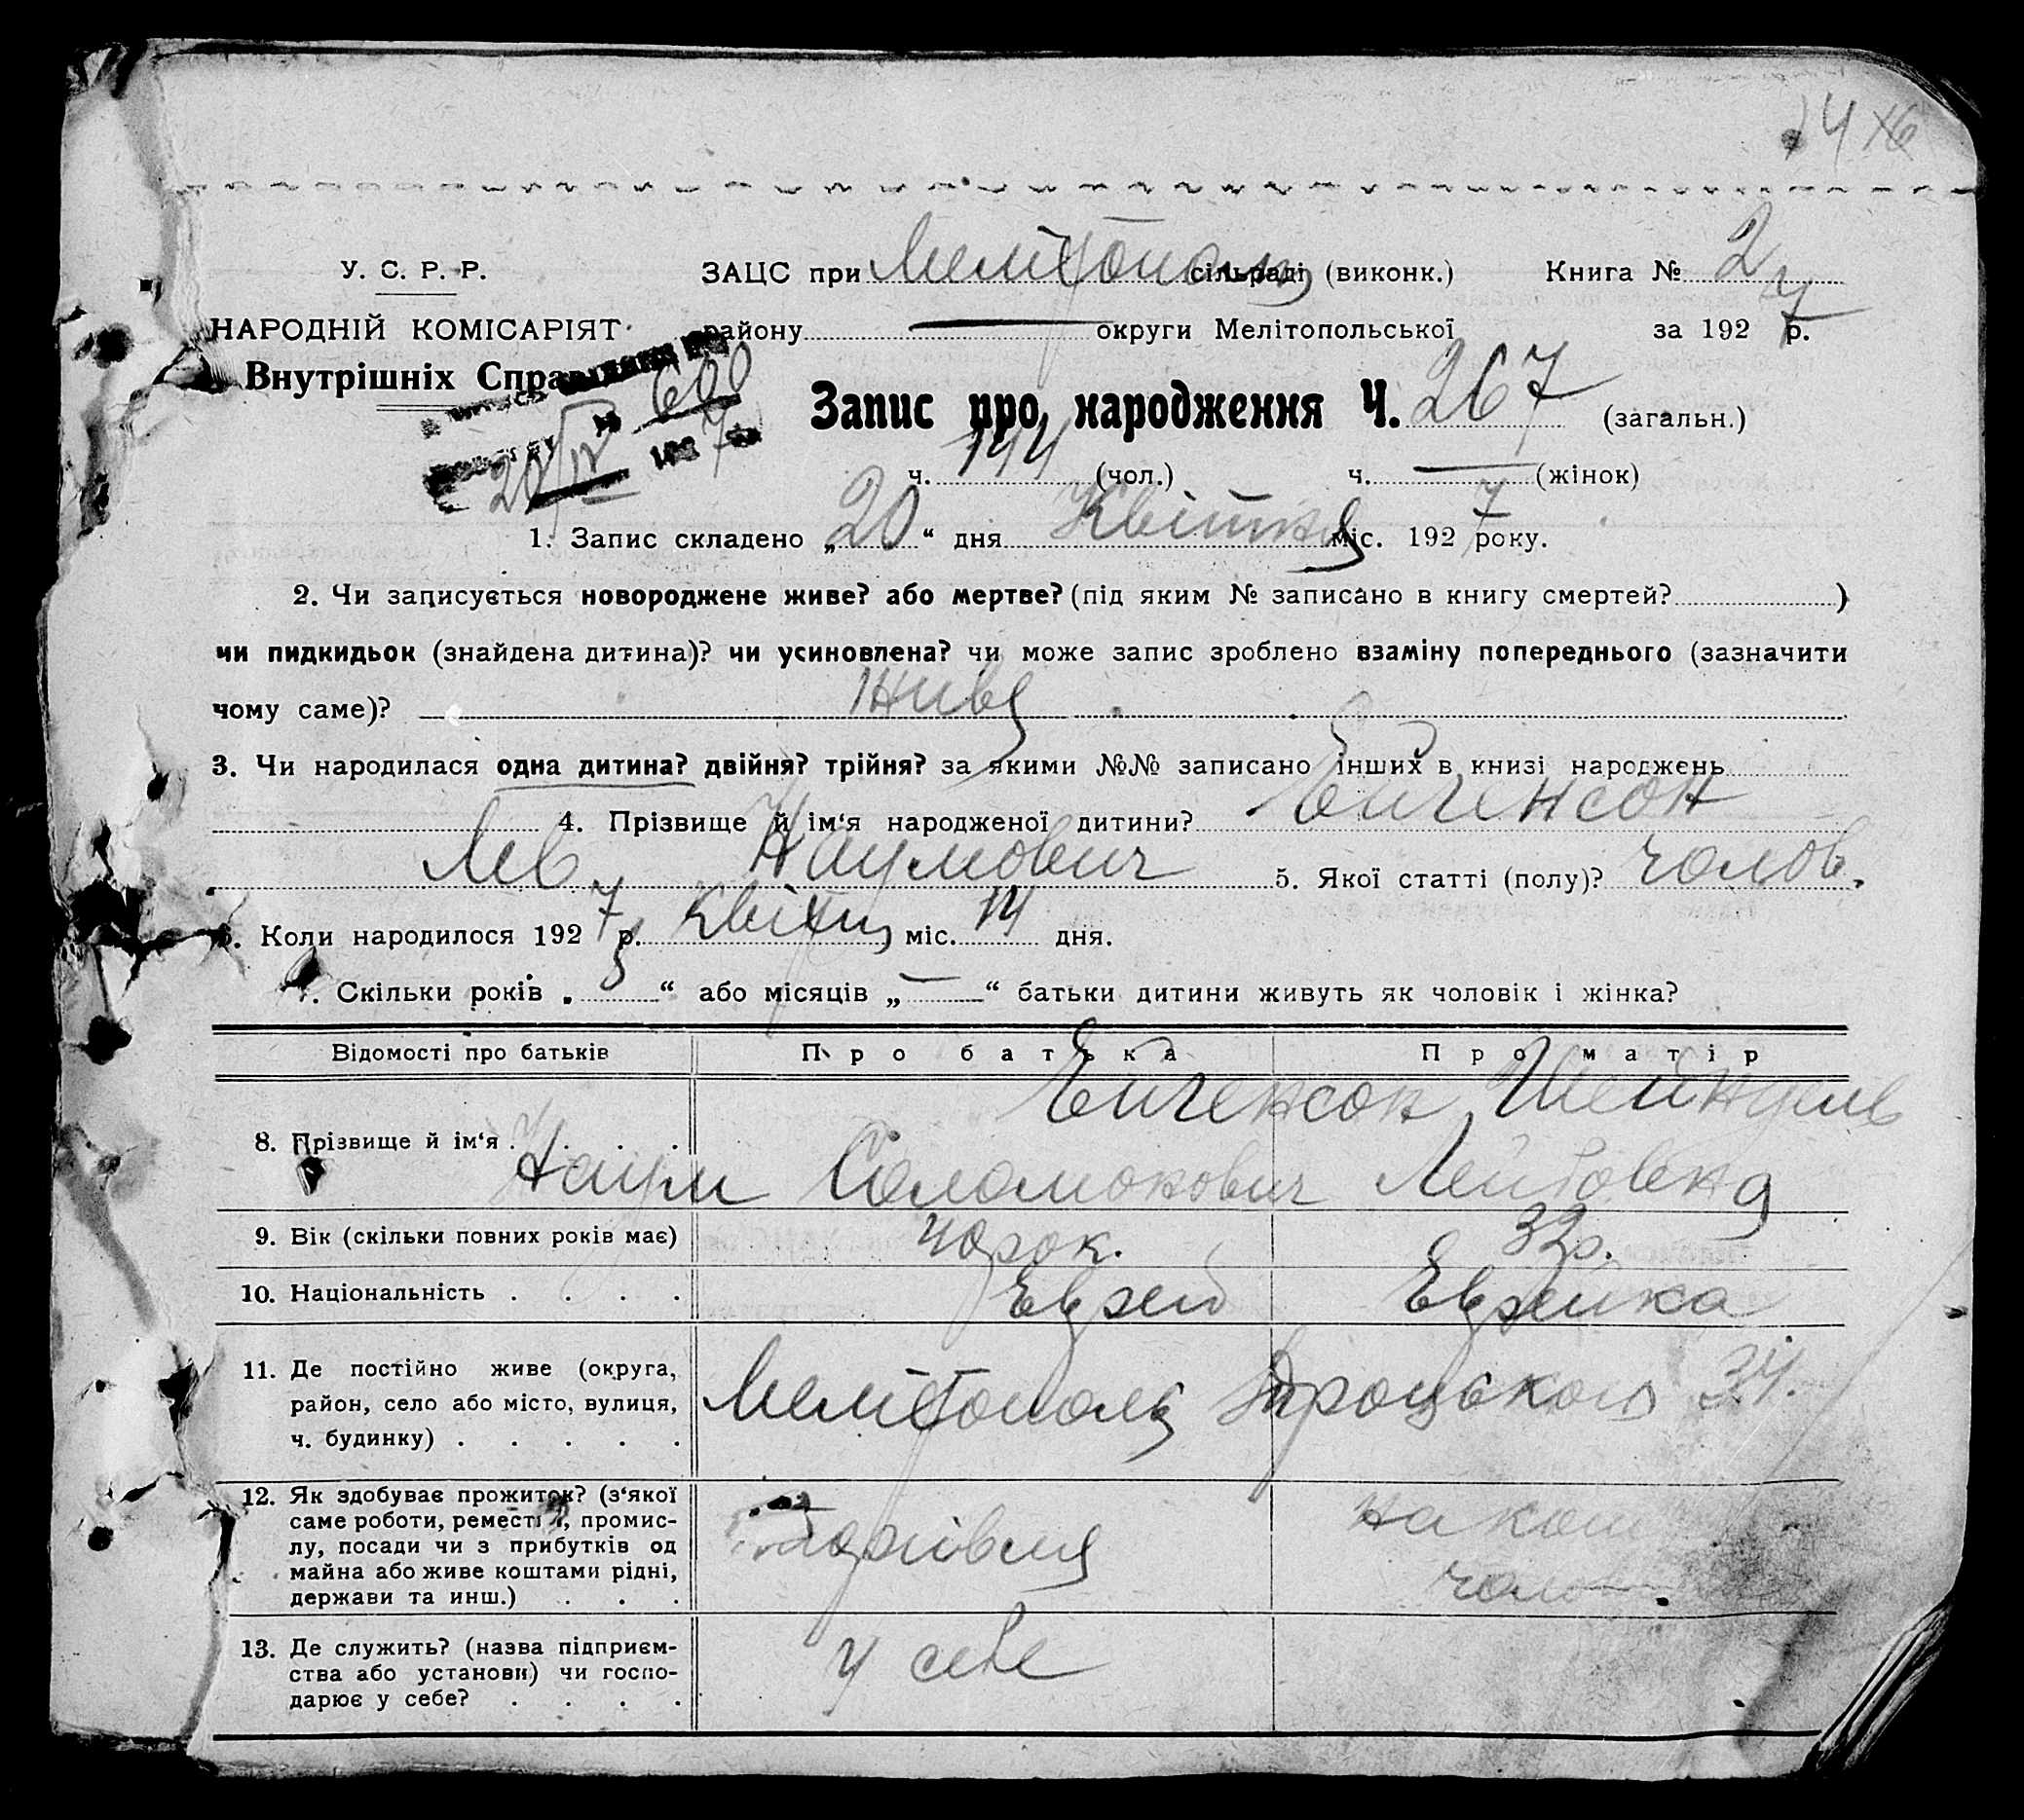 14 16
У. С. Р. Р. ЗАЦС при Мелітополь сільраді (виконк.) Книга № 2
НАРОДНІЙ КОМІСАРІЯТ району — округи Мелітопольської за 1927 р.
Внутрішніх Справ 600
Запис про народження Ч. 267 (загальн.)
20/IV 1927
ч. 144 (чол.) ч. — (жінок)
1. Запис складено „20“ дня Квітня міс. 1927 року.
2. Чи записується новороджене живе? або мертве? (під яким № записано в книгу смертей? )
чи пидкидьок (знайдена дитина)? чи усиновлена? чи може запис зроблено взаміну попереднього (зазначити
чому саме)? живе
3. Чи народилася одна дитина? двійня? трійня? за якими №№ записано інших в книзі народжень
4. Прізвище й ім‘я народженої дитини? Ейгенсон
Лев Наумович 5. Якої статті (полу)? чолов.
6. Коли народилося 1927 р. Квітня міс. 14 дня.
7. Скільки років „ “ або місяців „—“ батьки дитини живуть як чоловік і жінка?
Відомості про батьків Про батька Про матір
8. Прізвище й ім‘я . . . . Ейгенсон Шейндель
Наум Соломонович Лейбовна
9. Вік (скільки повних років має) 40 рок. 32 р.
10. Національність . . . . Еврей Еврейка
11. Де постійно живе (округа,
район, село або місто, вулиця,
ч. будинку) . . . . . Мелітополь Троцького 34.
12. Як здобуває прожиток? (з‘якої
саме роботи, ремества, промис-
лу, посади чи з прибутків од
майна або живе коштами рідні,
держави та инш.) . . . Торгівля на кош чолов
13. Де служить? (назва підприєм-
ства або установи) чи госпо-
дарює у себе? . . . . у себе